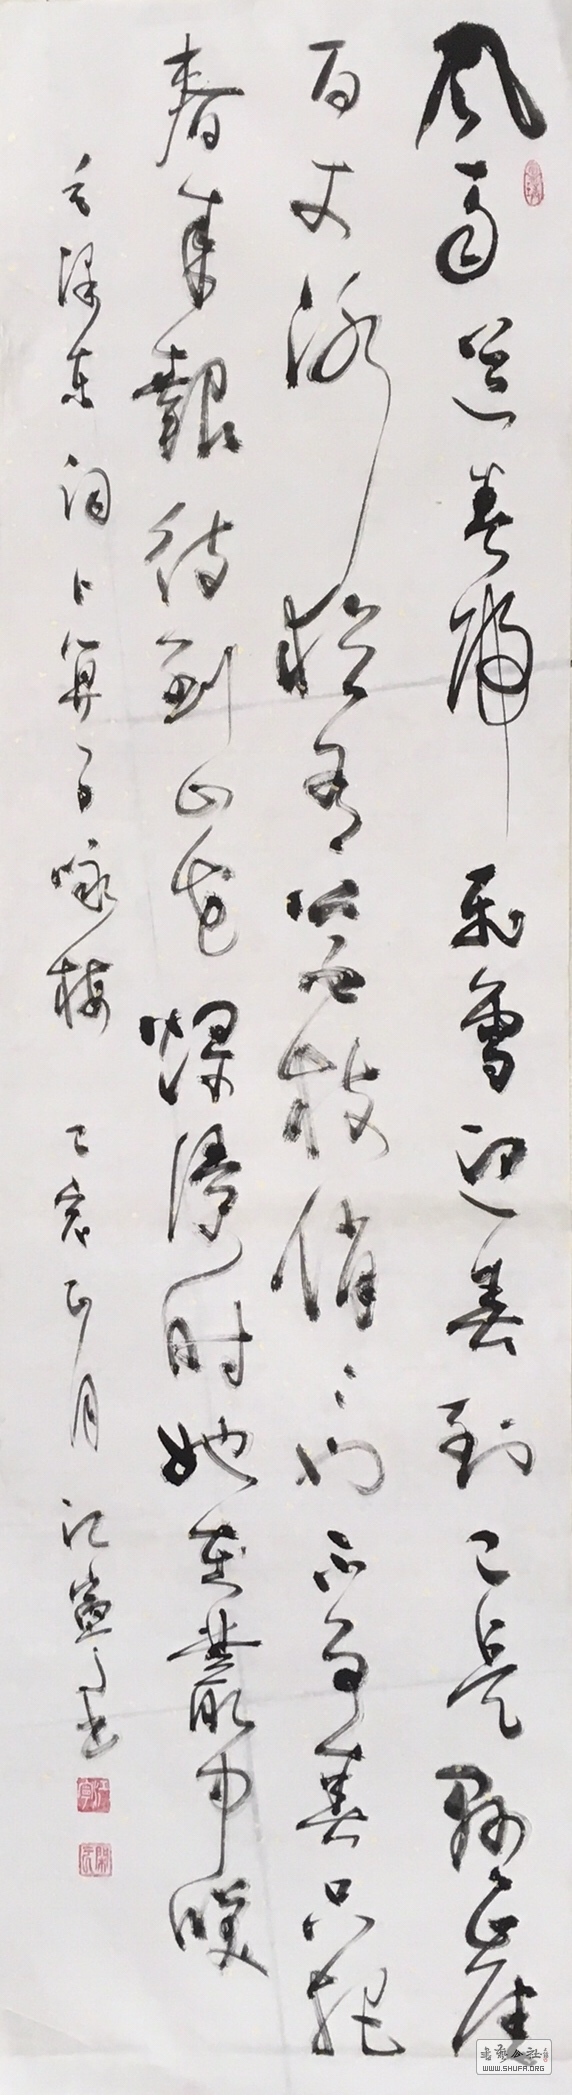 风雨送春归飞雪迎春到已是懸崖
百丈冰猶有花枝俏〻也不争春只把
春来報待到山花爛漫时她在叢中咲
毛泽东词卜算子咏梅 己亥正月 江
书法公社
WWW.SHUFA.ORG